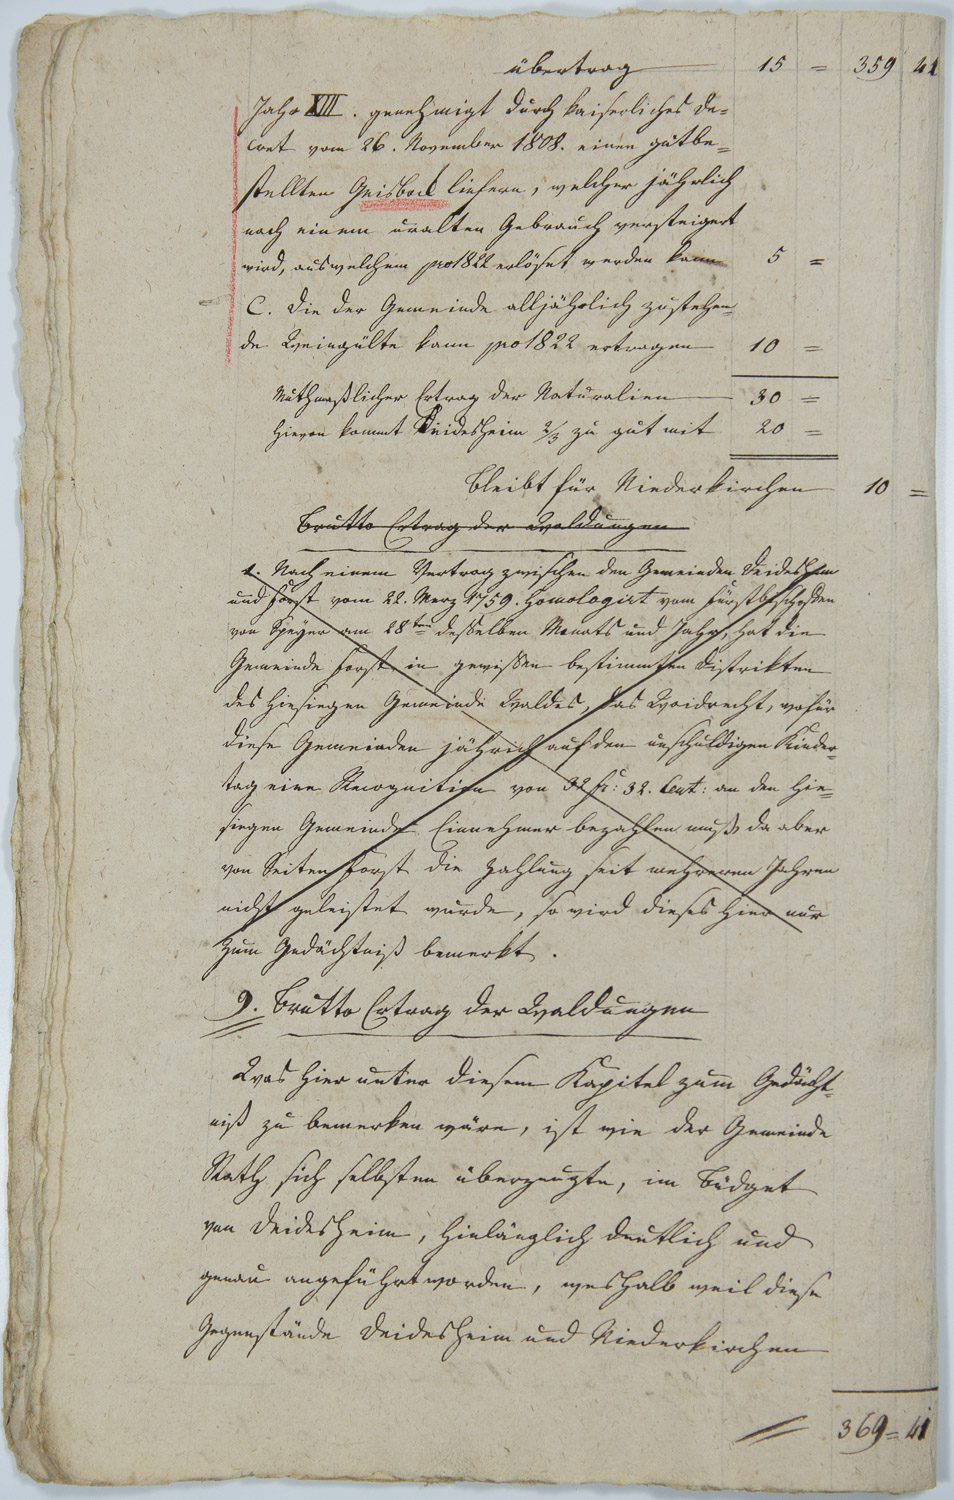 übertrag 15 = 359 41
Jahr XIII. genehmigt durch kaiserliches De=
cret vom 26. November 1808. einen gutbe=
stellten Geisbock liefern, welcher jährlich
nach einem uralten Gebrauch versteigert
wird, aus welchem pro 1822 erlöset werden kann 5 =
C. Die der Gemeinde alljährlich zustehen=
de Weingülte kann pro 1822 ertragen 10 =
Muthmaßlicher Ertrag der Naturalien 30 =
Hievon kommt Deidesheim 2/3 zu gut mit 20 =
Bleibt für Niederkirchen 10 =
Brutto Ertrag der Waldungen
1. Nach einem Vertrag zwischen den Gemeinden Deidesheim
und Forst vom 22. Merz 1759. Homologirt vom Fürstbischoffen
von Speyer am 28ten desselben Monats und Jahr, hat die
Gemeinde Forst in gewissen bestimmten Distrikten
des hiesigen Gemeinde Waldes, das Waidrecht, wofür
diese Gemeinden jährich auf den unschuldigen Kinder=
tag eine Recognition von 32 fr: 32. Cent: an den hie=
sigen Gemeinde Einnehmer bezahlen muß, da aber
von Seiten Forst die Zahlung seit mehreren Jahren
nicht geleistet wurde, so wird dieses hier nur
zum Gedächtniß bemerkt.
9. Brutto Ertrag der Waldungen
Was hier unter diesem Kapitel zum Gedächt=
niß zu bemerken wäre, ist wie der Gemeinde
Rath sich selbsten überzeugte, im Büdget
von Deidesheim, hinlänglich deutlich und
genau angeführt worden, weshalb weil diese
Gegenstände Deidesheim und Niederkirchen
369 = 41